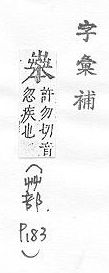 字彙補
許勿切音
忽疾也
(艸部.
P183)